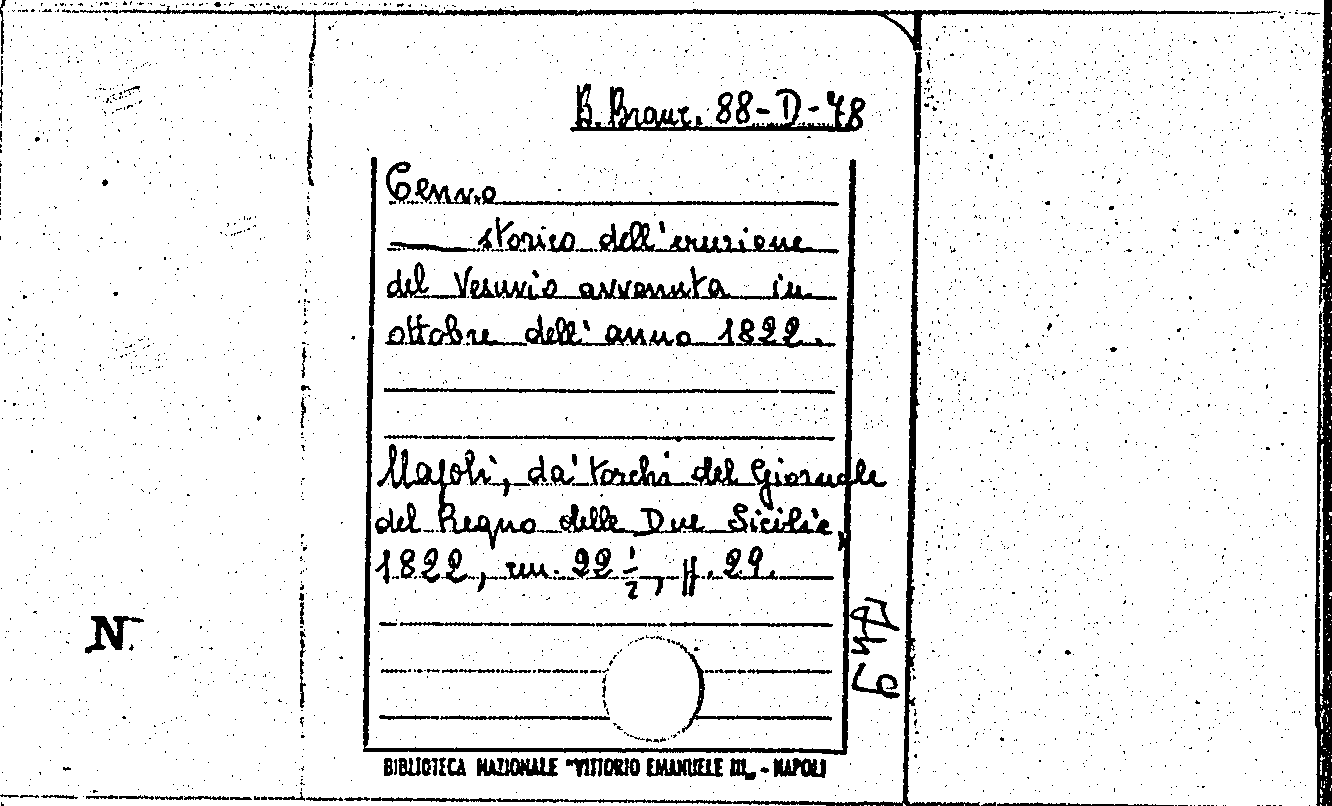 B. Branc. 88-D-78
Cenno
storico dell'eruzione
del Vesuvio avvenuta in
ottobre dell'anno 1822.
Napoli, da' torchi del Giornale
del Regno delle Due Sicilie,
1822, cm. 22 ½, pp. 29.
N.
BIBLIOTECA NAZIONALE "VITTORIO EMANUELE III„ - NAPOLI